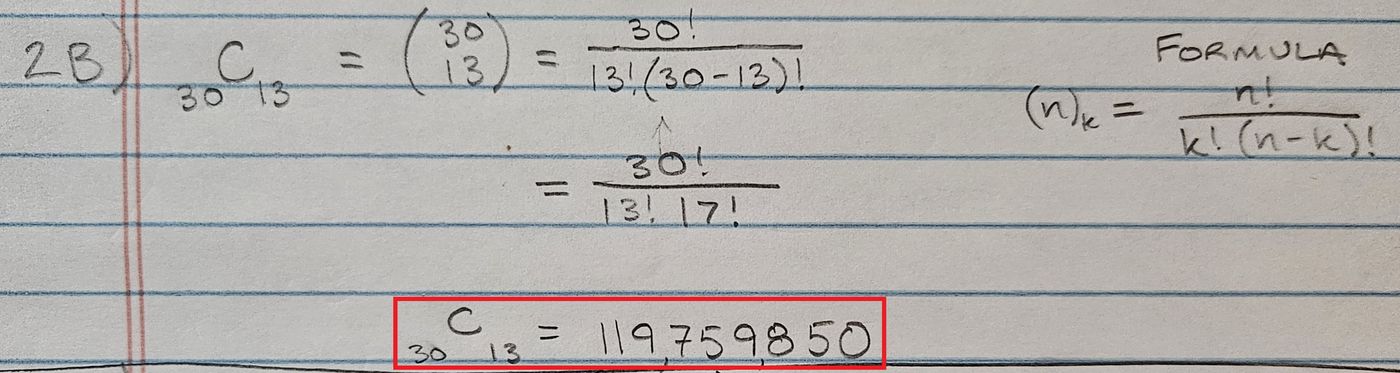 2B) ₃₀C₁₃ = (30 13) = 30! / 13!(30-13)!
FORMULA
(n)ₖ = n! / k!(n-k)!
= 30! / 13! 17!
₃₀C₁₃ = 119,759,850